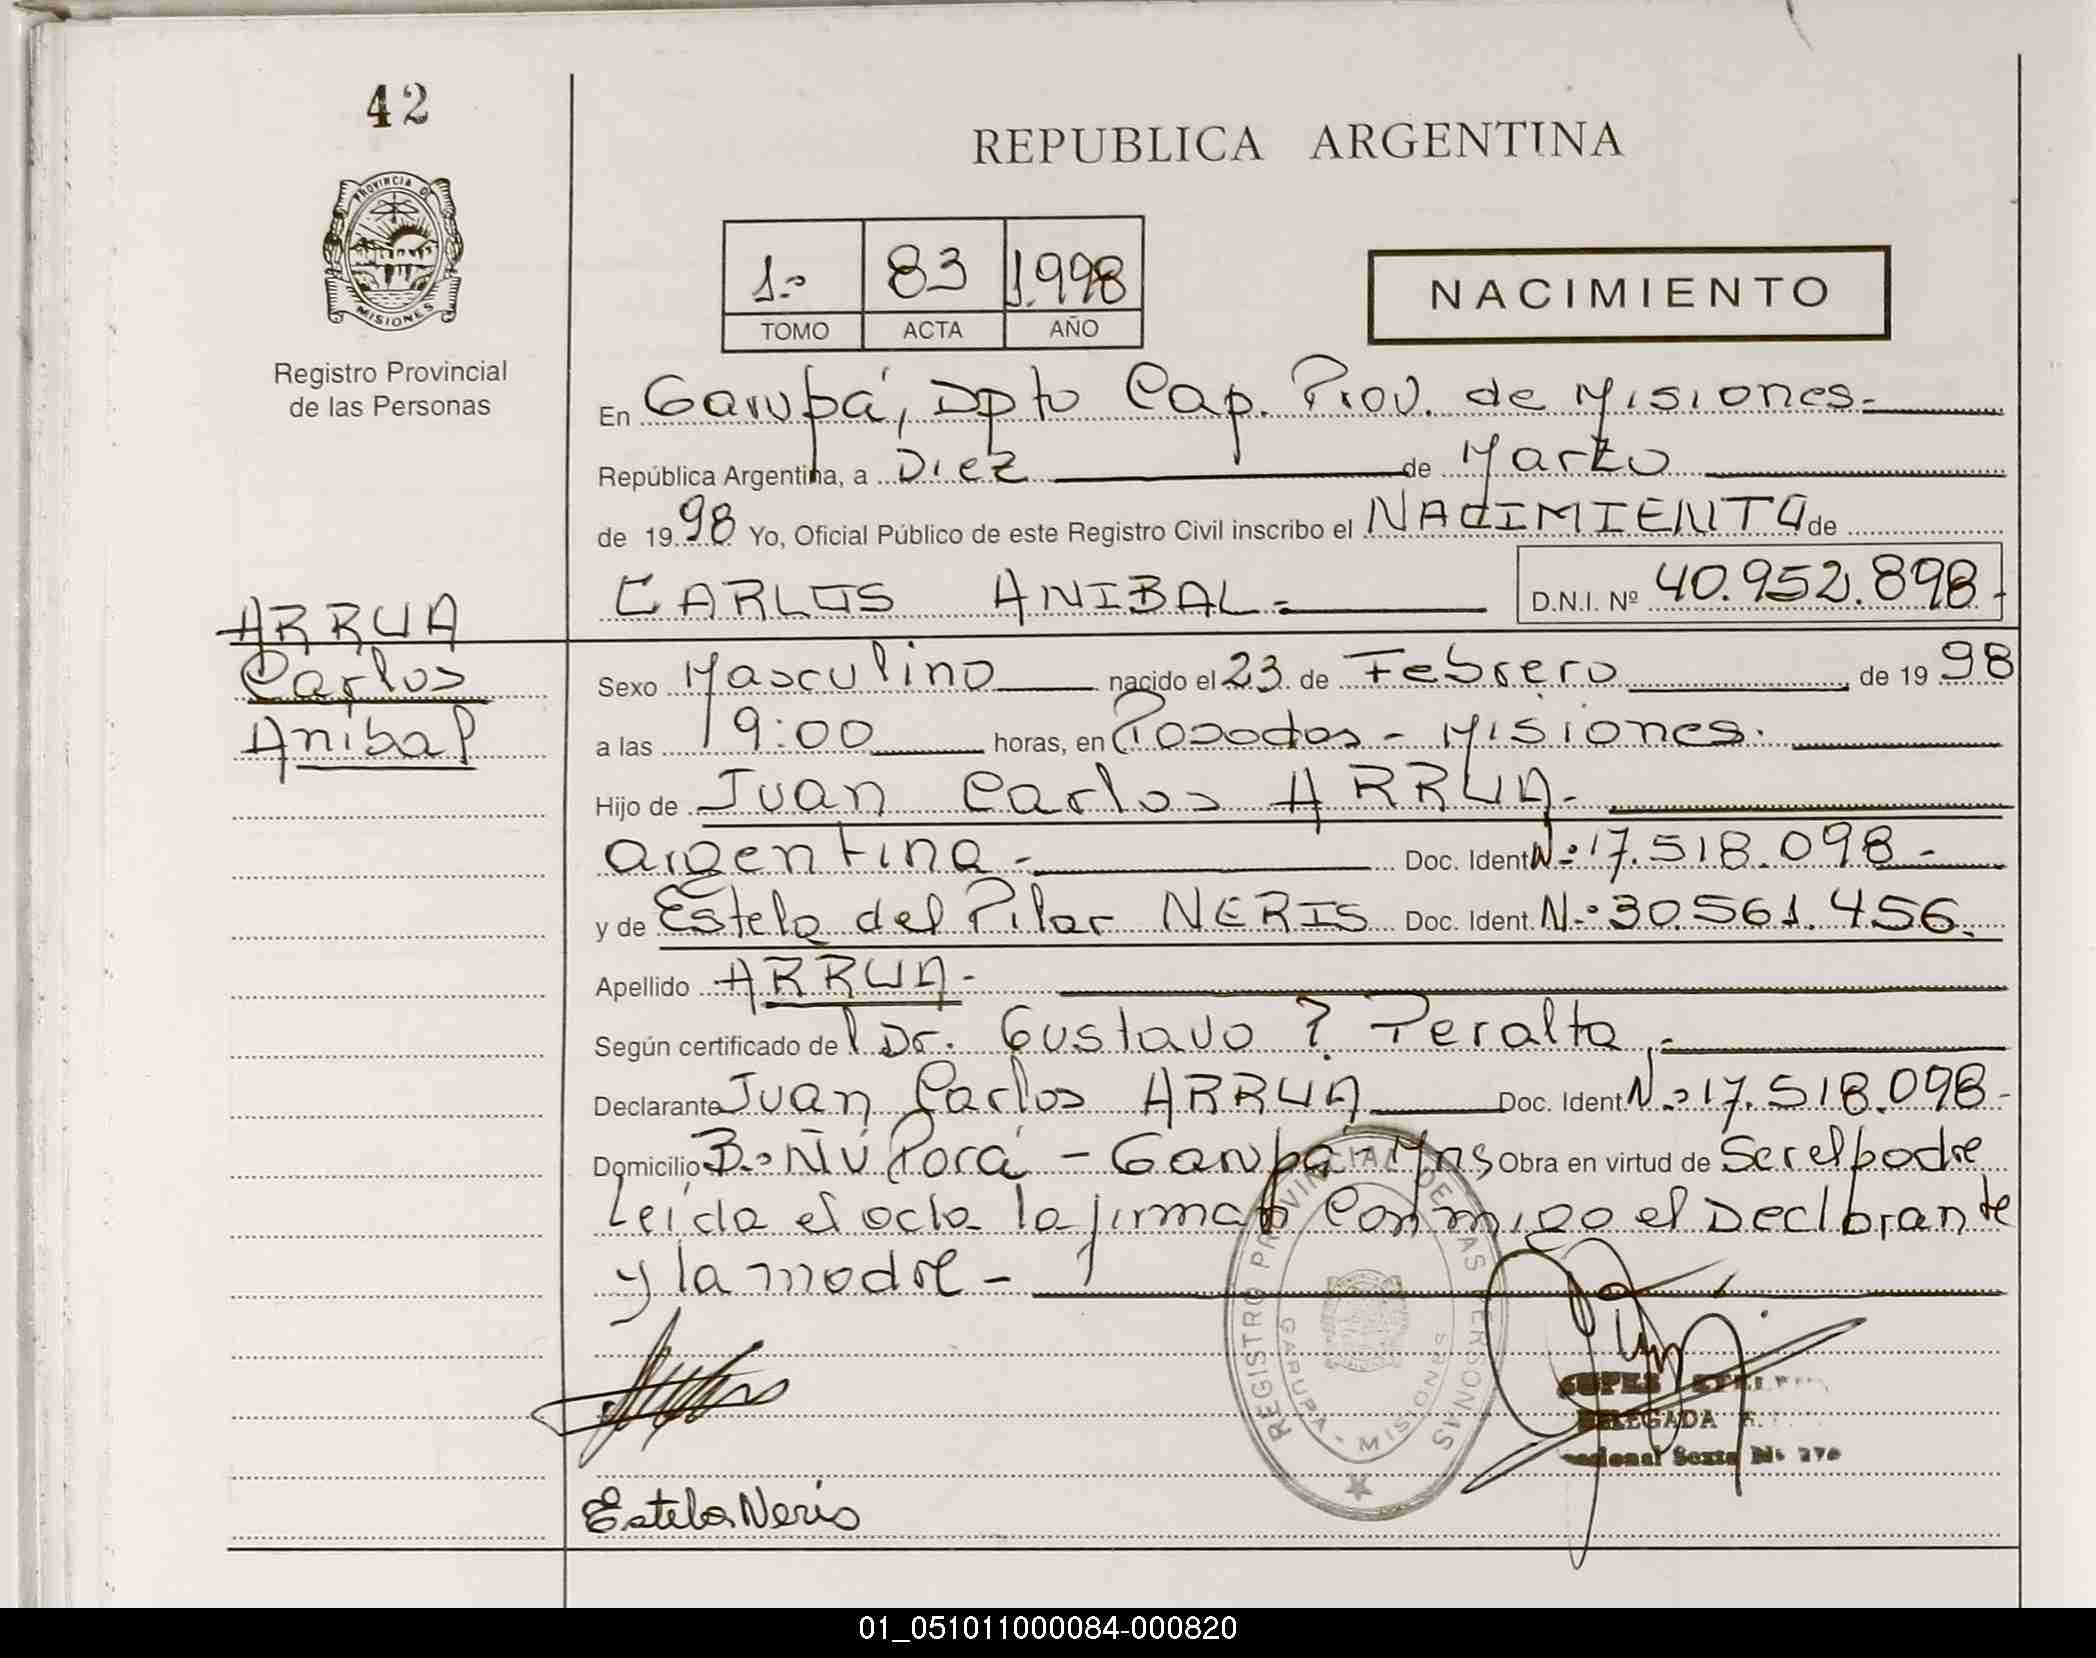 42
REPUBLICA ARGENTINA
PROVINCIA D
MISIONES
Registro Provincial
de las Personas
1.º 83 1.998
TOMO ACTA AÑO
NACIMIENTO
En Garupá, Dpto Cap. Prov. de Misiones.-
República Argentina, a Diez de Marzo
de 1998 Yo, Oficial Público de este Registro Civil inscribo el NACIMIENTO de
CARLOS ANIBAL.- D.N.I. Nº 40.952.898.-
ARRUA
Carlos
Anibal
Sexo Masculino nacido el 23 de Febrero de 1998
a las 19:00 horas, en Posadas - Misiones.
Hijo de Juan Carlos ARRUA.-
argentina.- Doc. Ident. N.º 17.518.098.-
y de Estela del Pilar NERIS Doc. Ident. N.º 30.561.456.
Apellido ARRUA.-
Según certificado del Dr. Gustavo ? Peralta.-
Declarante Juan Carlos ARRUA Doc. Ident. N.º 17.518.098.-
Domicilio B.º Ñú Porá - Garupá - Mns Obra en virtud de Ser el padre
Leida el acta la firman conmigo el Declarante
y la madre -
REGISTRO PROVINCIAL DE LAS PERSONAS
GARUPA - MISIONES
DELEGADA R.
Estela Neris
01_051011000084-000820